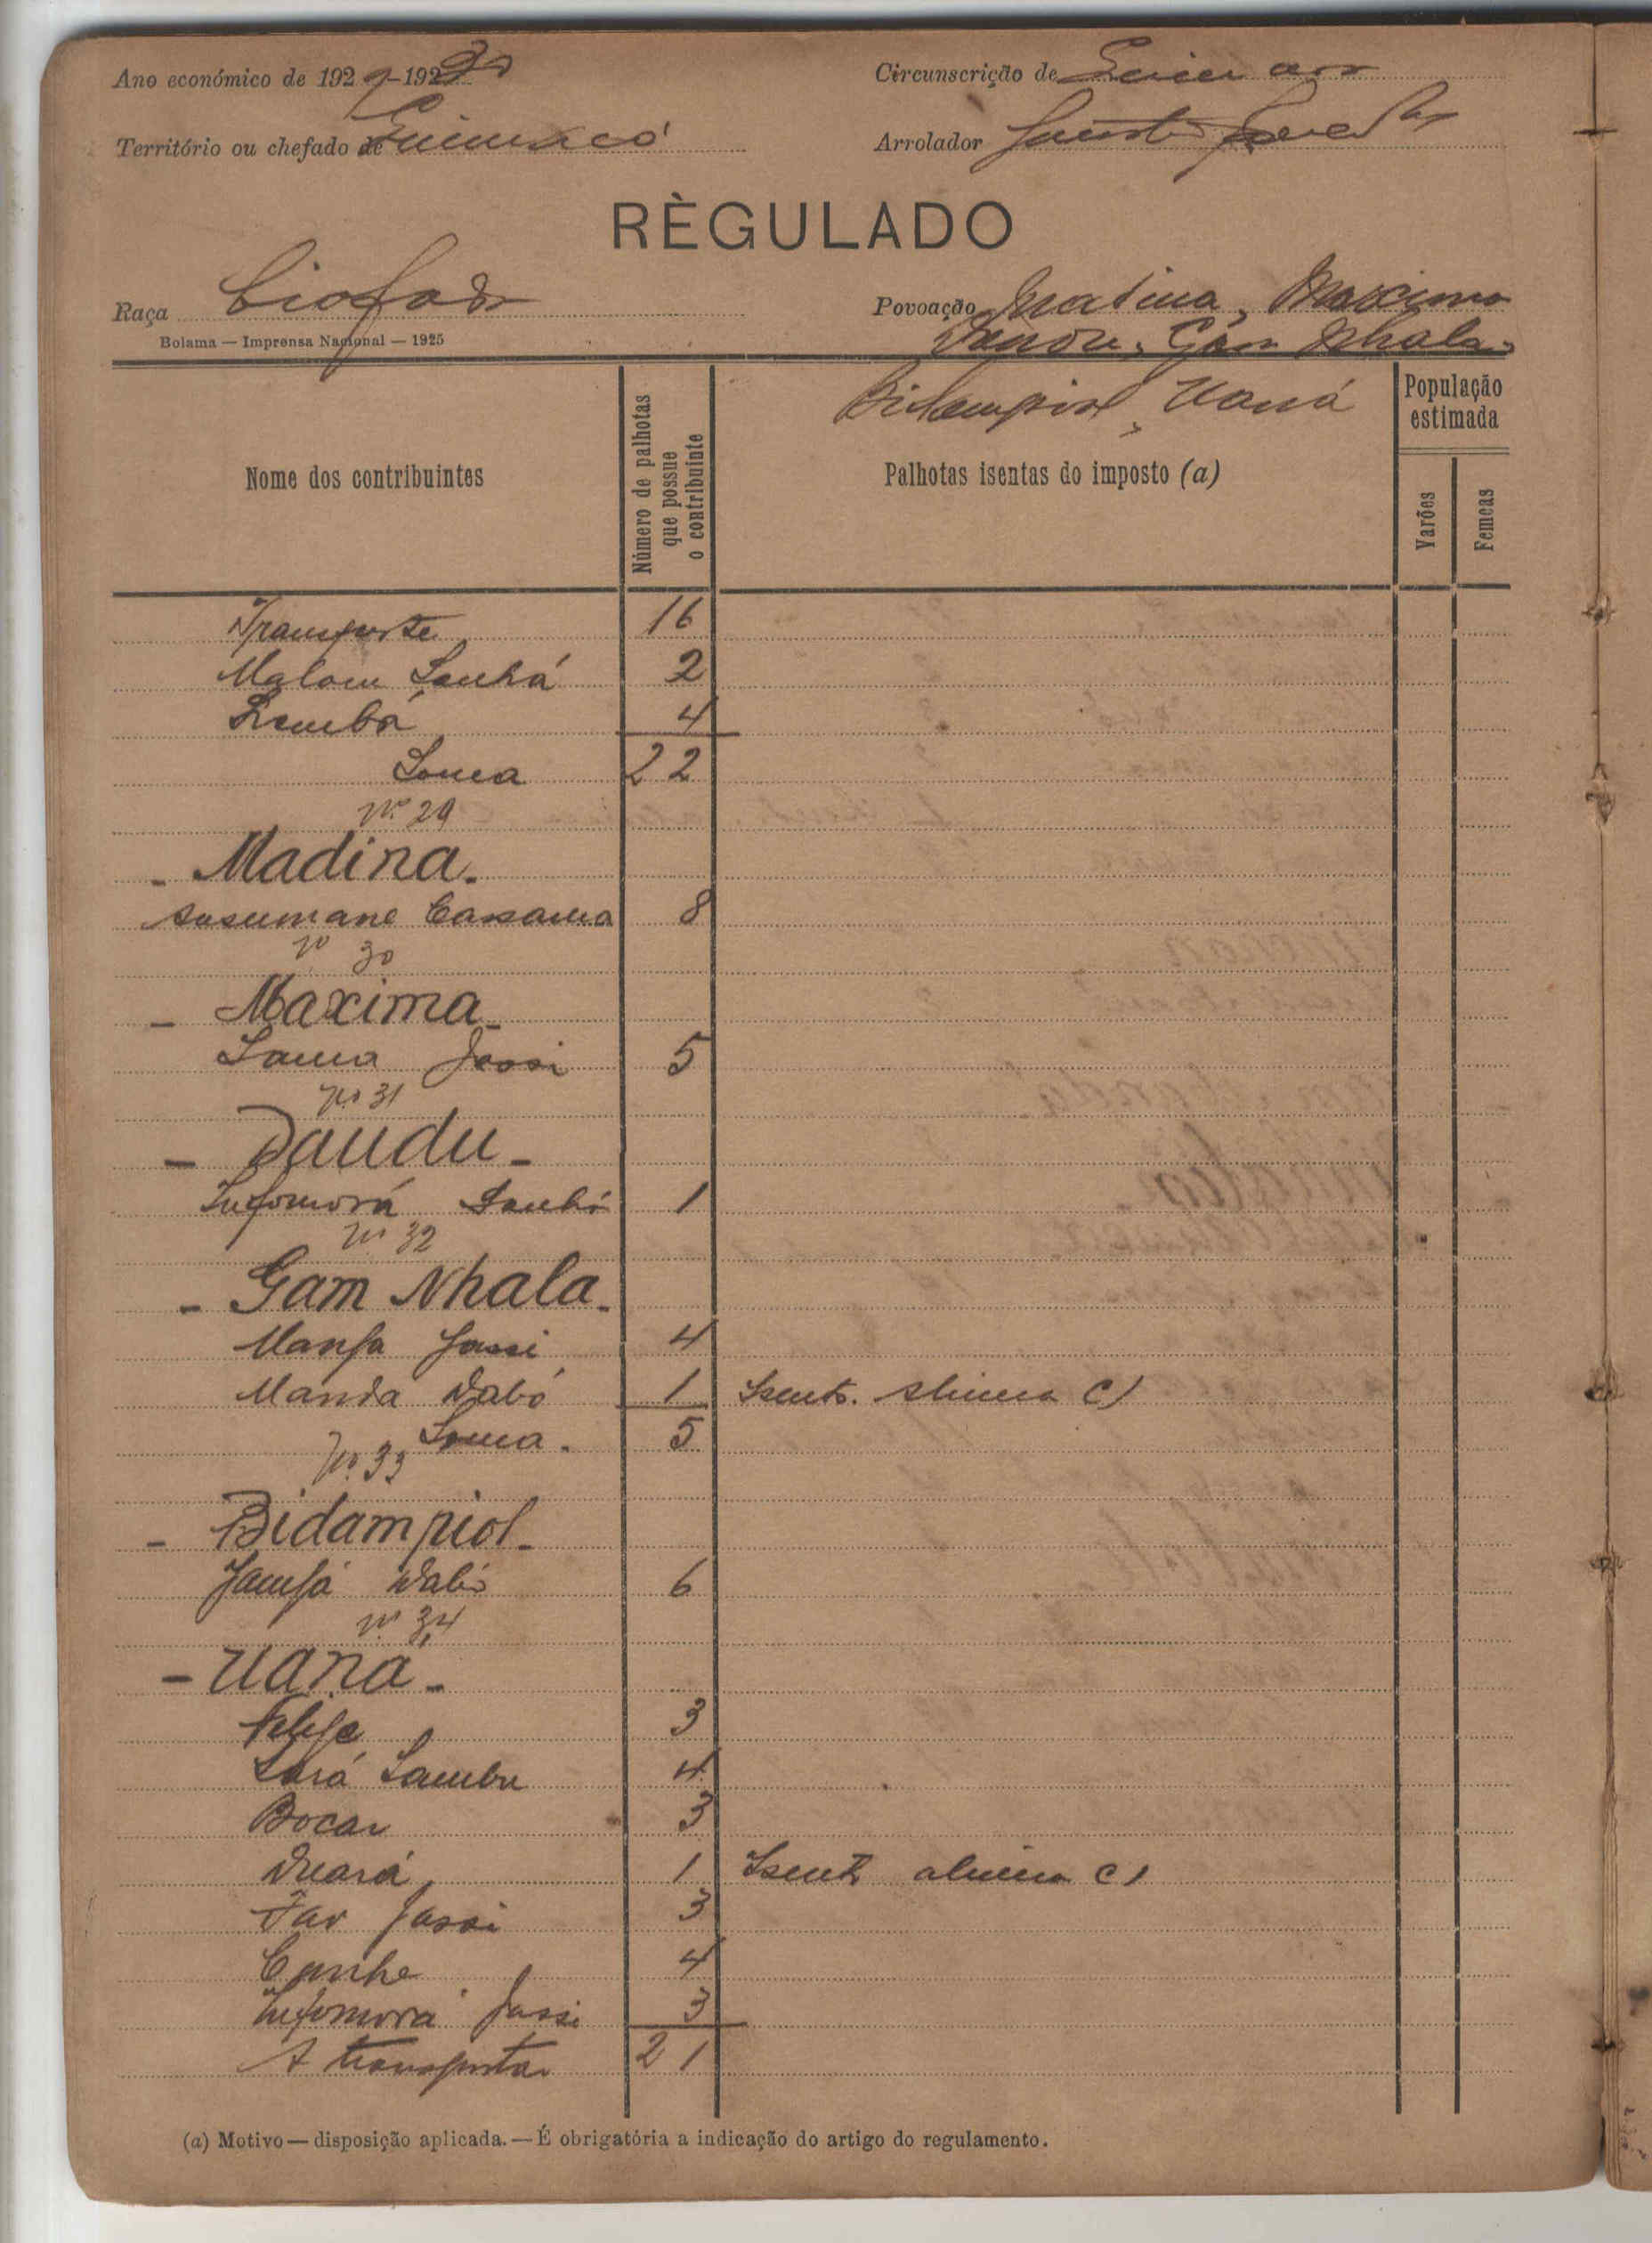 Ano económico de 1929-1930
Circunscrição de
Território ou chefado de
Arrolador
RÈGULADO
Raça Biofada
Povoação Madina, Maxima
Dandu, Gam Nhala
Bolama — Imprensa Nacional — 1925
Bidampiol, Uaná
Nome dos contribuintes
Número de palhotas que possue o contribuinte
Palhotas isentas do imposto (a)
População estimada
Varões
Femeas
Transporte 16
Malam Sanhá 2
4
Soma 22
Nº 29
- Madina -
Susumane Cassama 8
Nº 30
- Maxima -
Sama Jassi 5
Nº 31
- Daudu -
Infomorá Sanhá 1
Nº 32
- Gam Nhala -
Mansa Jassi 4
Manda Dabó 1 Isento. alinea C)
Soma. 5
Nº 33
- Bidampiol -
Dabó 6
Nº 34
- Uaná -
Felipe 3
Sambu 4
Bocar 3
Duará 1 Isento alinea C)
Jassi 3
Cunhe 4
Infomorá Jassi 3
A transportar 21
(a) Motivo — disposição aplicada. — É obrigatória a indicação do artigo do regulamento.